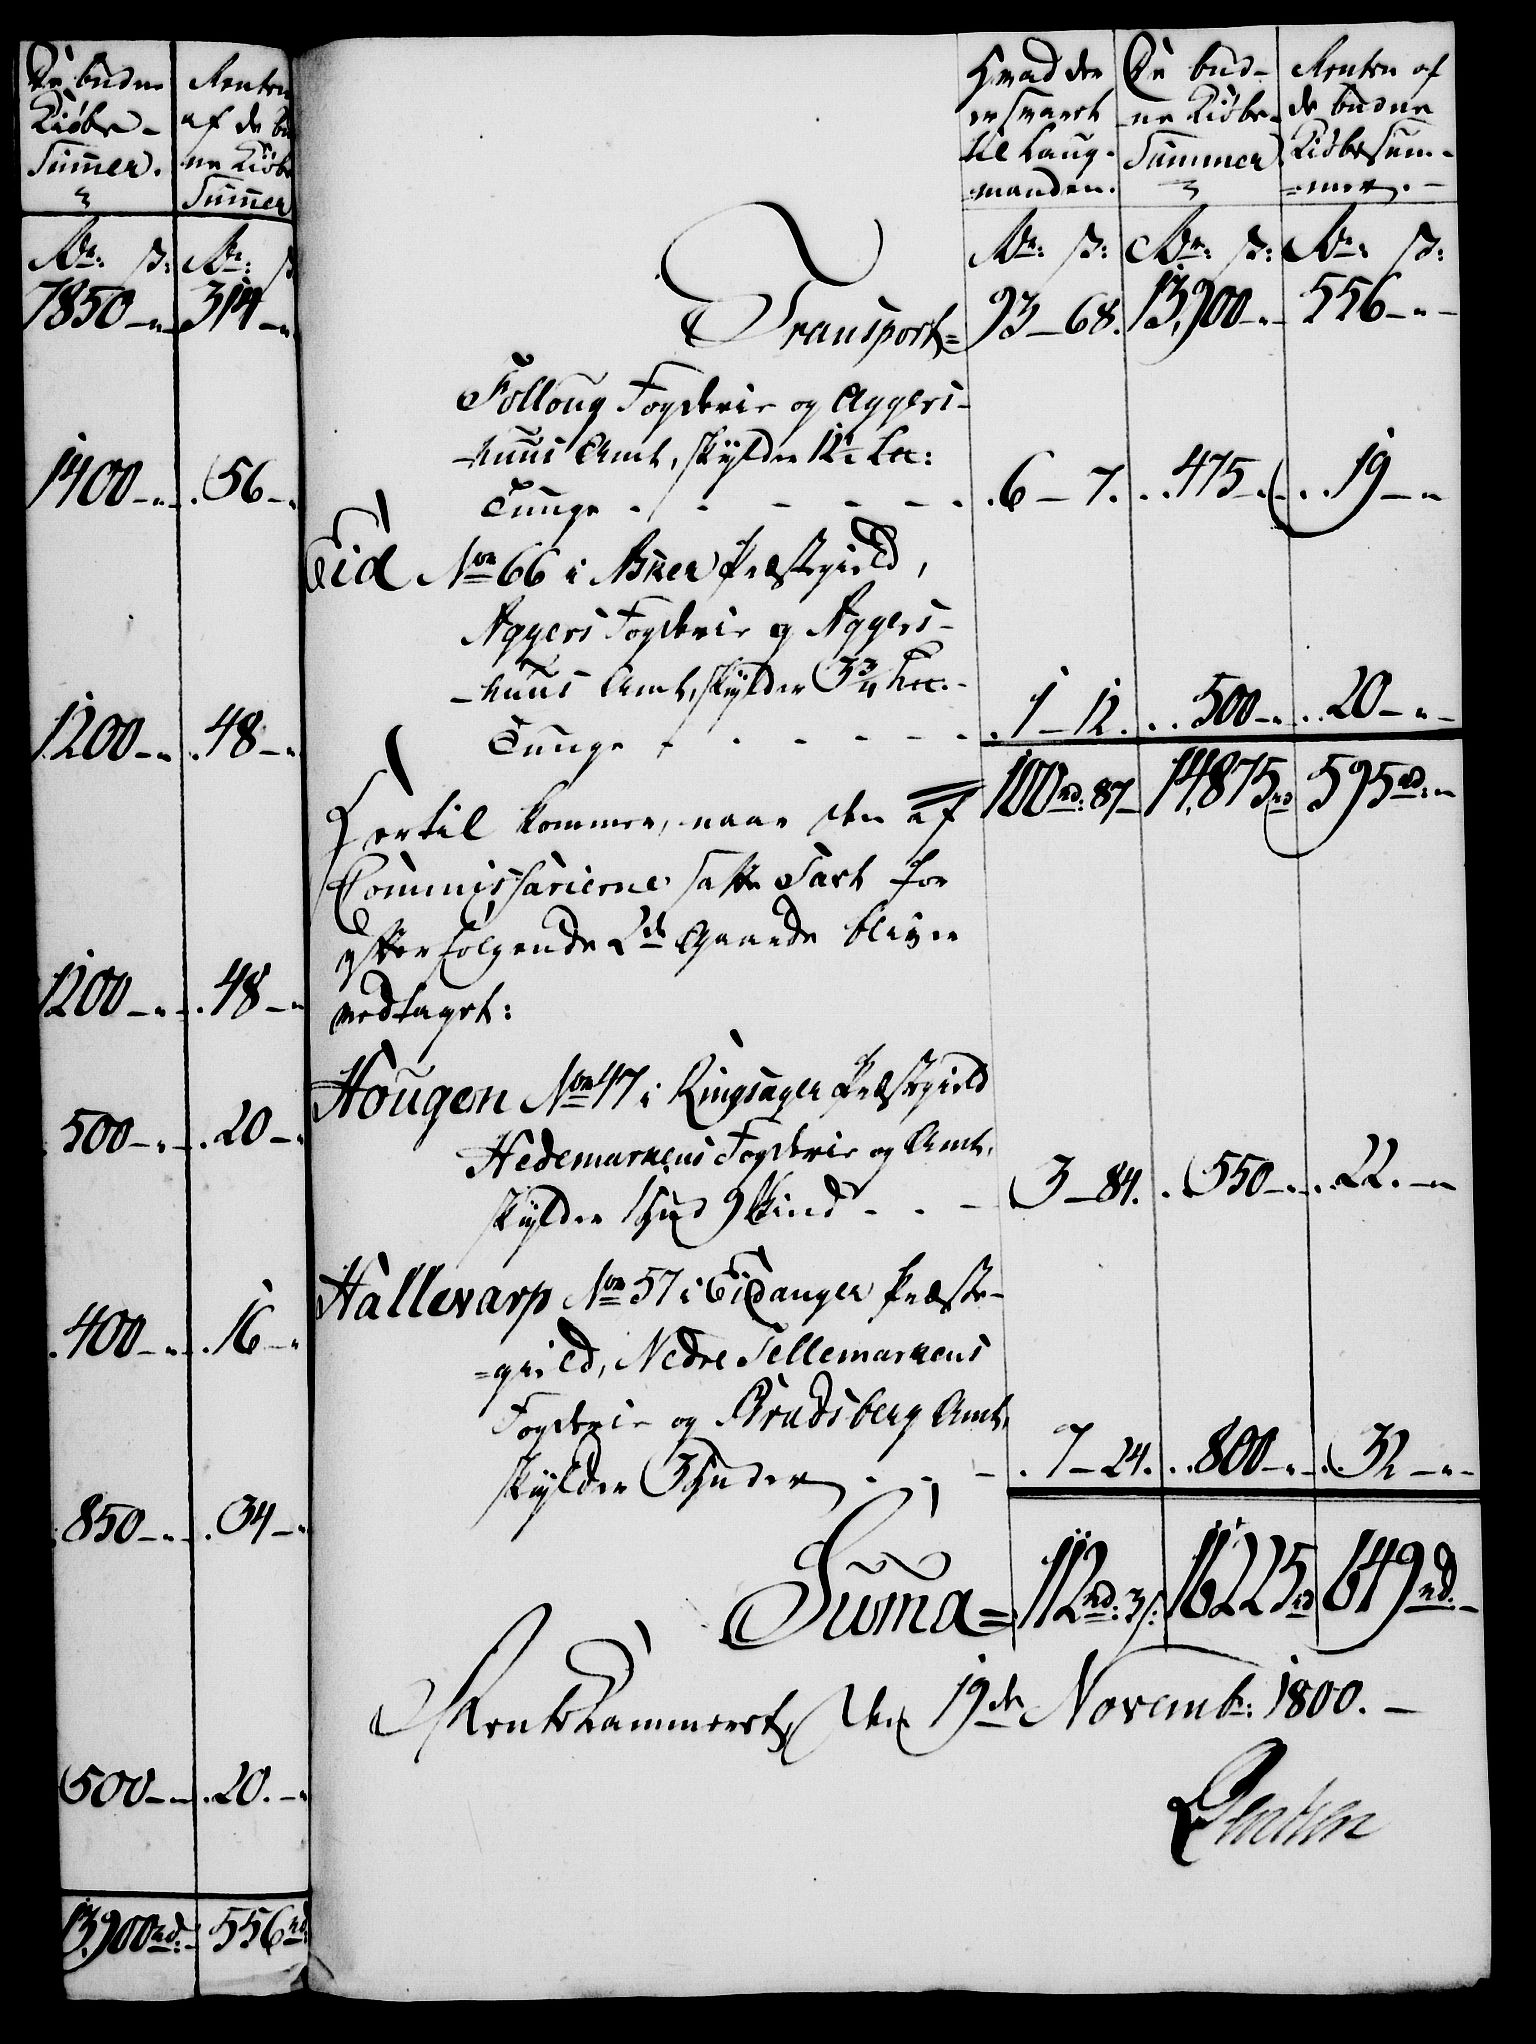 De budne
Kiöbe-
Summer.
Renten
af de bu
ne Kiöbe
Summer
Rdr: s: Rdr: s
7850 - " - 314 - "
1400 - " - 56 - "
1200 - " 48 - "
1200 - " - 48 - "
500 - " - 20 - "
400 - " - 16 - "
850 - " - 34 - "
500 - " 20. - "
13,900 rd: 556 rd:
Hvad der
er svaret
til Laug-
manden.
De bud-
ne Kiöbe-
Summer
Renten af
de budne
Kiöbesum-
=mer. -
Rdr: s: Rdr: s: Rdr: s:
Transport= 93 - 68. 13,900 - " - 556 - " -
Folloug Fogderie og Aggers-
-huus Amt, skylder 1½ Lis:
Tunge . . - - - - . 6 - 7. . . 475 - " - . . 19 - "
Eid No 66 i Asker Præstegield,
Aggers Fogderie og Aggers-
-huus Amt, skylder 3¾ Lis. -
Tunge . . - - - - . 1 - 12. . . 500 - " . . 20 - " -
100 rd: 87 - 14,875 rd 595 rd: "
Hertil kommer, naar den af
Commissarierne satte Taxt for
efterfølgende 2de Gaarde bliver
vedtaget:
Hougen No 47 i Ringsager Præstegield
Hedemarkens Fogderie og Amt,
skylder 1 Hud 9 Skind - . - 3 - 84. . 550 - " - . 22. - "
Hallevarp No 57 i Eidanger Præste-
=gield, Nedre Tellemarkens
Fogderie og Bradsberg Amt,
skylder 3 Huder . - - . 7 - 24. . . 800 - " - . 32 - " -
Suma = 112 rd: 3 s: 16225 rd 649 rd. -
Rentekammeret, den 19de Novemb: 1800. -